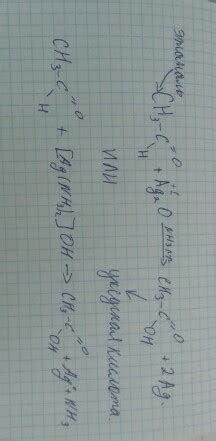 этаналь
CH₃-C(=O)H + Ag₂⁺¹O NH₃·H₂O→ CH₃-C(=O)OH + 2Ag.
ИЛИ уксусная кислота.
CH₃-C(=O)H + [Ag(NH₃)₂]OH → CH₃-C(=O)OH + Ag + NH₃